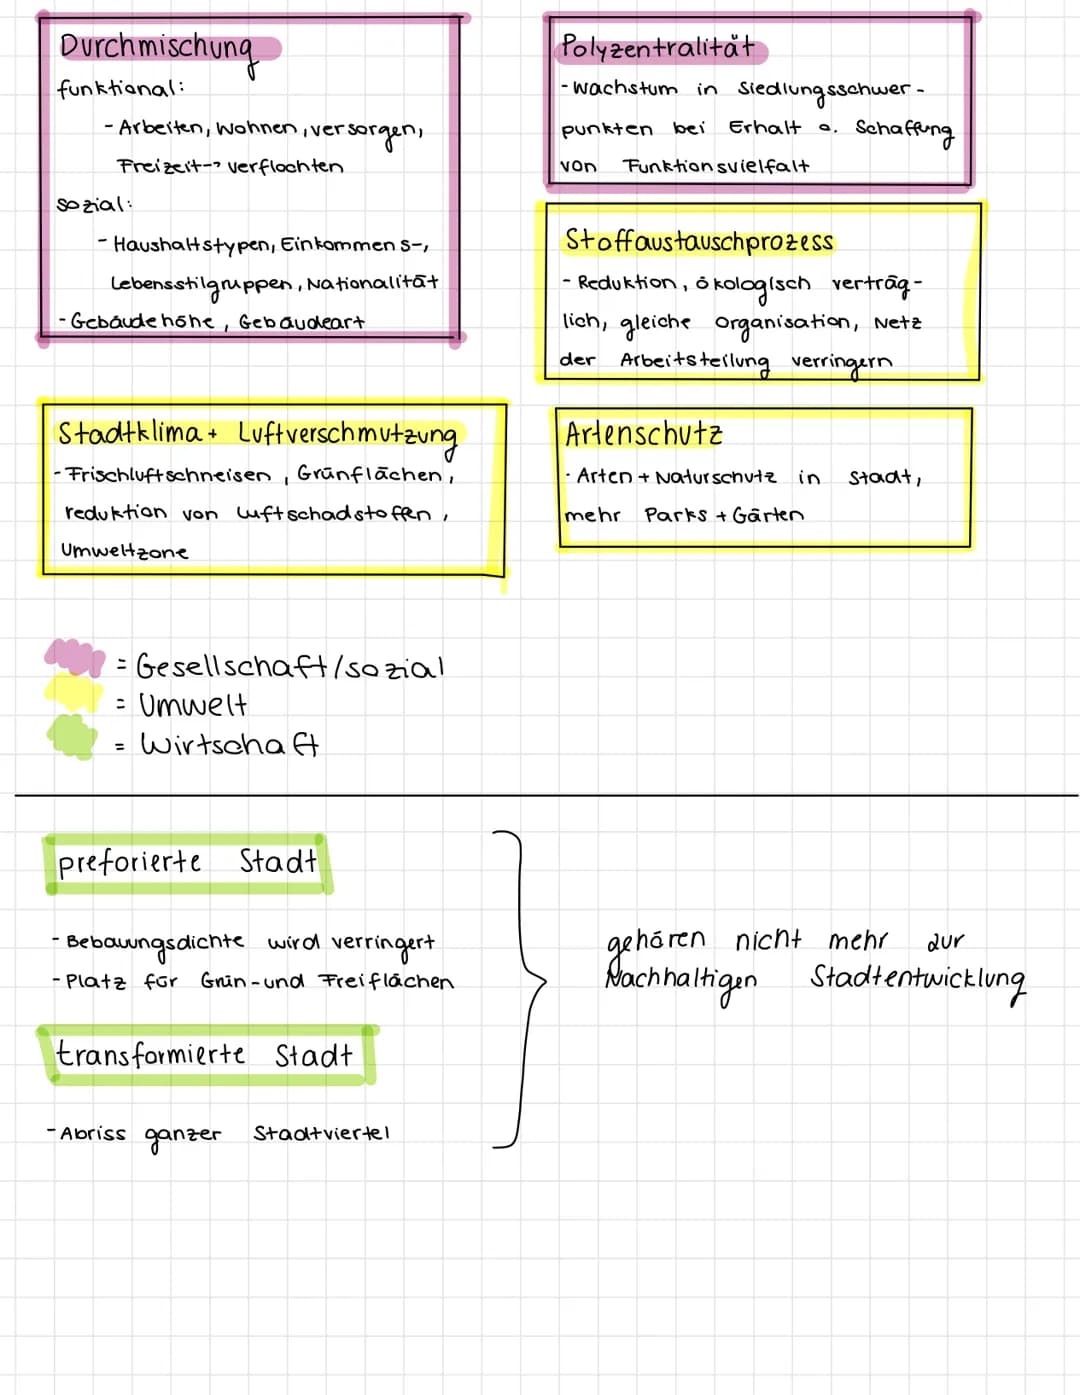 Durchmischung
funktional:
- Arbeiten, Wohnen, versorgen,
Freizeit -> verflochten
sozial:
- Haushaltstypen, Einkommens-,
Lebensstilgruppen, Nationalität
- Gebäudehöhe, Gebäudeart
Polyzentralität
- Wachstum in Siedlungsschwer-
punkten bei Erhalt o. Schaffung
von Funktionsvielfalt
Stoffaustauschprozess
- Reduktion, ökologisch verträg-
lich, gleiche Organisation, Netz
der Arbeitsteilung verringern
Stadtklima + Luftverschmutzung
- Frischluftschneisen, Grünflächen,
reduktion von Luftschadstoffen,
Umweltzone
Artenschutz
- Arten + Naturschutz in Stadt,
mehr Parks + Gärten
= Gesellschaft/sozial
= Umwelt
= Wirtschaft
preforierte Stadt
- Bebauungsdichte wird verringert
- Platz für Grün- und Freiflächen
transformierte Stadt
- Abriss ganzer Stadtviertel
gehören nicht mehr zur
Nachhaltigen Stadtentwicklung